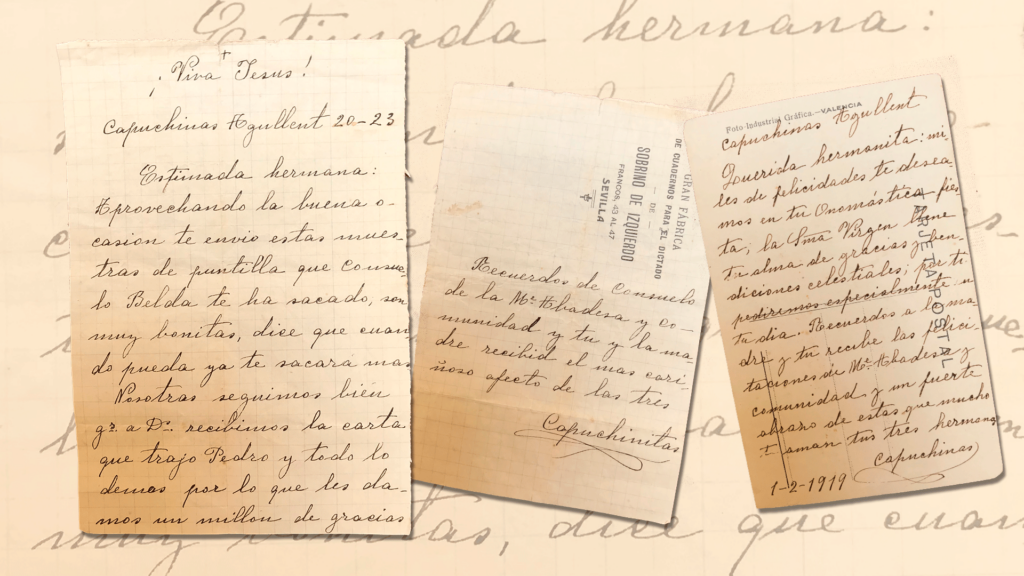 Estimada hermana:
¡Viva Jesus!
Capuchinas Agullent 20-23
Estimada hermana:
Aprovechando la buena o-
casion te envio estas mues-
tras de puntilla que Consue-
lo Belda te ha sacado, son
muy bonitas, dice que cuan
do pueda ya te sacará mas
Nosotras seguimos bien
gs. a Ds. recibimos la carta
que trajo Pedro y todo lo
demas por lo que les da-
mos un millon de gracias
GRAN FÁBRICA
DE CUADERNOS PARA EL DICTADO
— DE —
SOBRINO DE IZQUIERDO
FRANCOS, 43 AL 47
SEVILLA
Recuerdos de Consuelo
de la Me. Abadesa y co-
munidad y tu y la ma
dre recibid el mas cari-
ñoso afecto de las tres
Capuchinitas
Foto-Industrial Gráfica.—VALENCIA
Capuchinas Agullent
Querida hermanita: mi
les de felicidades te desea-
mos en tu Onomástica fies
ta; la Sma Virgen llene
tu alma de gracias y ben-
diciones celestiales; por ti
pediremos especialmente en
tu dia. Recuerdos a la ma
dre y tu recibe las felici-
taciones de Me. Abadesa y
comunidad y un fuerte
abrazo de estas que mucho
te aman tus tres hermanas
Capuchinas
1-2-1919
TARJETA POSTAL
muy bonitas, dice que cuan